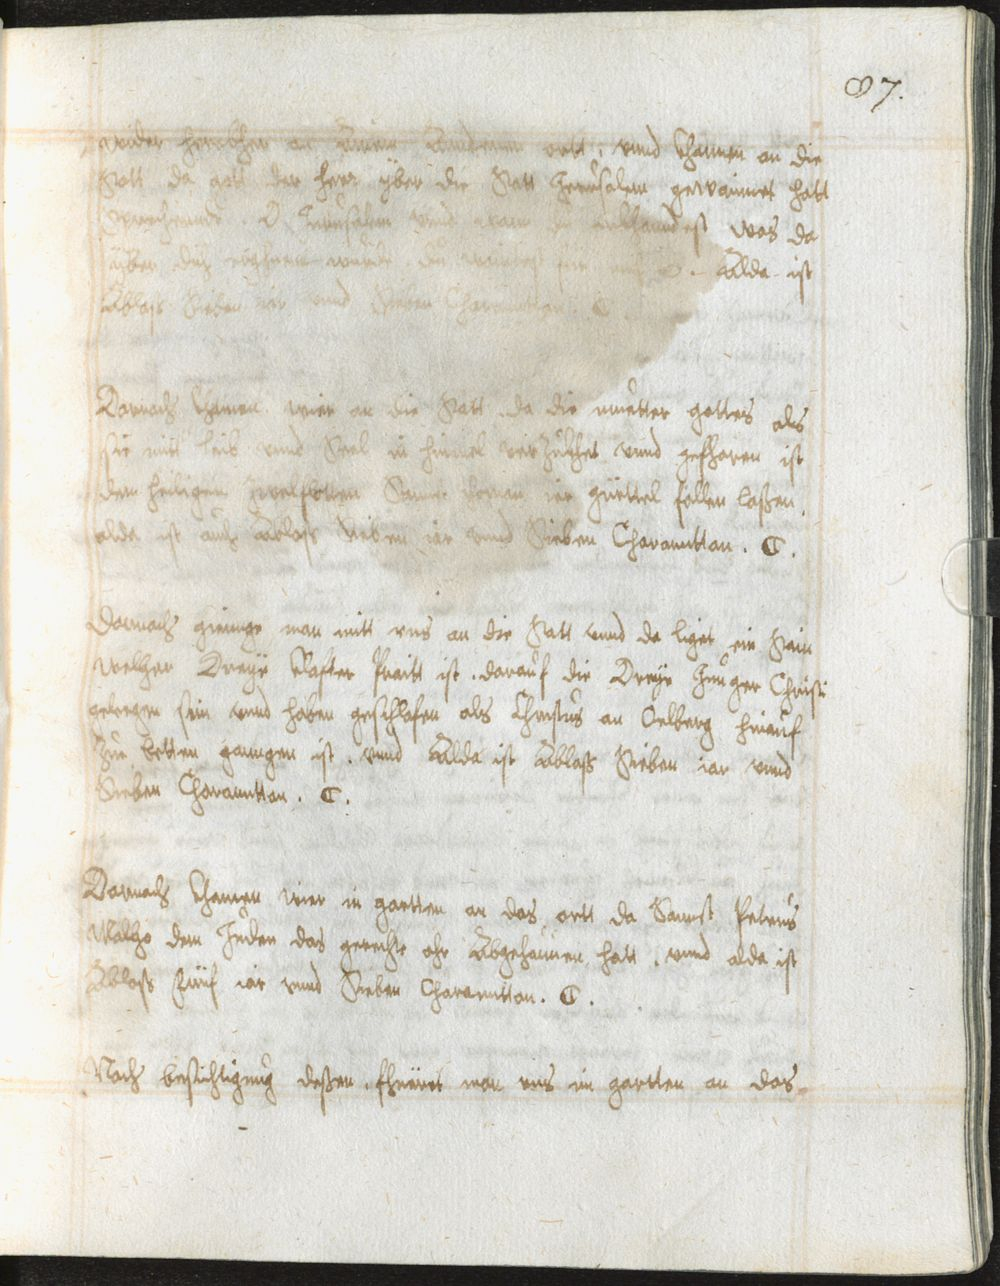 87.
wider herüber an einen Anderen ortt, vnnd khamen an die
Statt da gott der herr yber die Statt Jerusalem gewainnet hatt
sprechendt. O Jerusalem was da
yber dich Alda ist
Ablaß Siben iar vnnd Sieben Charanntten. C.
Darnach khamen wier an die Statt da die muetter gottes als
sie mitt leib vnnd Seel in himel verzukhet vnnd gefharen ist
dem heiligen zwelfbotten Sannt Toman ier gürttel fallen laßen.
alda ist auch Ablaß Siben iar vnnd Sieben Charanntten. C.
Darnach gienge man mitt vns an die Statt vnnd da liget ein Stain
welcher Dreyer Klafter Praitt ist, darauf die Dreye Junger Christi
gelegen sein vnnd haben geschlafen als Christus an Oelberg hinauf
Zue betten ganngen ist, vnnd Alda ist Ablaß Sieben iar vnnd
Sieben Charanntten. C.
Darnach khamen wier in gartten an das ortt da Sannct Petrus
Malcho dem Juden das gerechte ohr Abgehauen hatt, vnnd alda ist
Ablaß Fünf iar vnnd Sieben Charanntten. C.
Nach besichtigung deßen, fhüert man vns im gartten an das